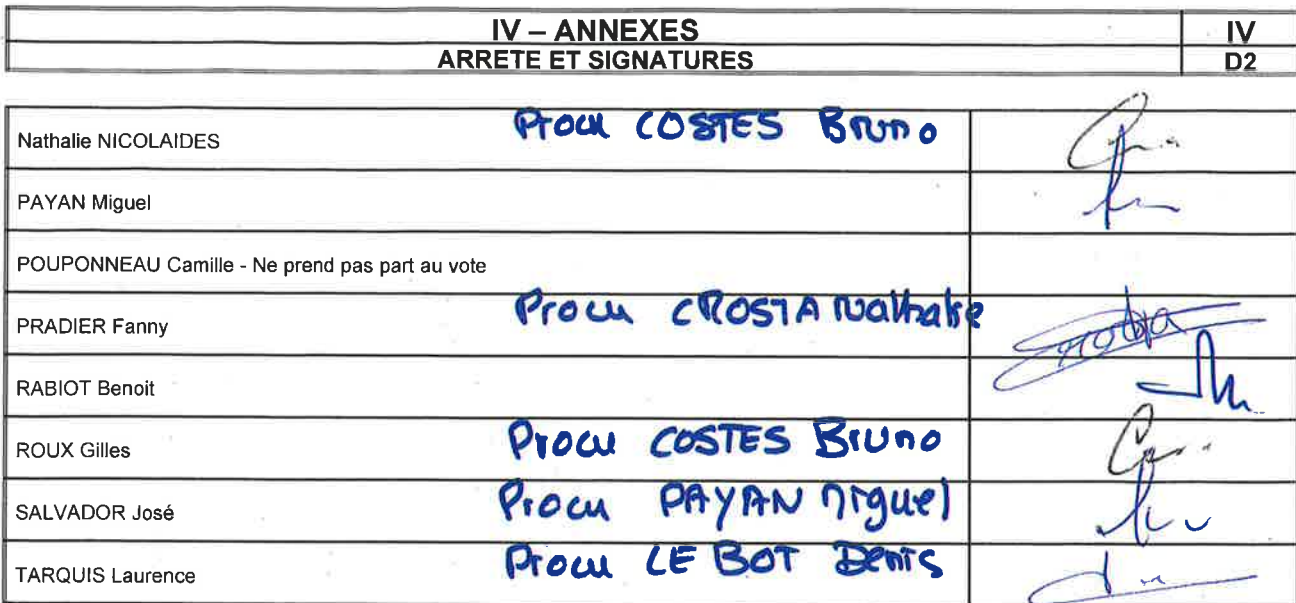 IV – ANNEXES IV
ARRETE ET SIGNATURES D2
Nathalie NICOLAIDES Procu COSTES Bruno
PAYAN Miguel
POUPONNEAU Camille - Ne prend pas part au vote
PRADIER Fanny Procu CROSTA Nathalie
RABIOT Benoit
ROUX Gilles Procu COSTES Bruno
SALVADOR José Procu PAYAN Miguel
TARQUIS Laurence Procu LE BOT Denis